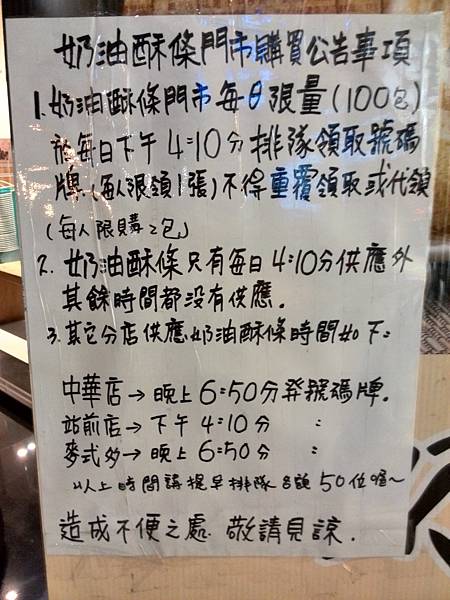 奶油酥條門市購買公告事項
1. 奶油酥條門市每日限量(100包)
於每日下午4:10分排隊領取號碼
牌.(每人限領1張)不得重覆領取或代領
(每人限購2包)
2. 奶油酥條只有每日4:10分供應外
其餘時間都没有供應.
3. 其它分店供應奶油酥條時間如下:
中華店→晚上6:50分發號碼牌.
站前店→下午4:10分 :
麥式多→晚上6:50分 :
以上時間請提早排隊名額50位喔~
造成不便之處.敬請見諒.